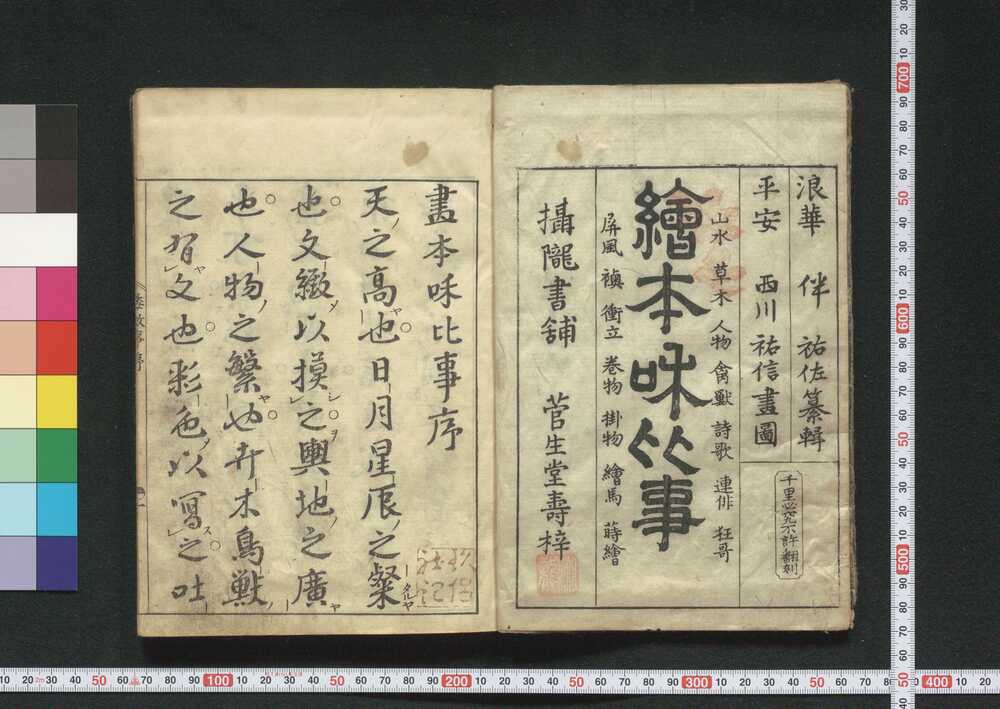 浪華 伴 祐佐纂輯
平安 西川祐信畫圖
千里必究不許翻刻
山水 草木 人物 禽獸 詩歌 連俳 狂哥
繪本咊比事
屏風 襖 衝立 卷物 掛物 繪馬 蒔繪
攝隴書舖 菅生堂壽梓
畫本咊比事序
天之高也日月星辰之粲
也文緻以摸之輿地之廣
也人物之繁也卉木鳥獣
之有文也彩色以寫之吐